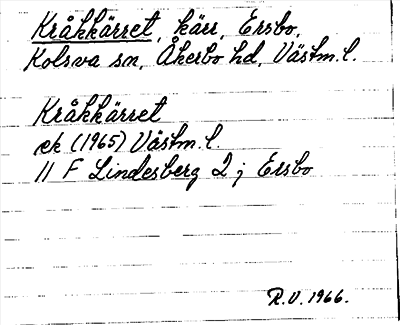 Kråkkärret, kärr, Ersbo,
Kolsva sn, Åkerbo hd, Västm. l.
Kråkkärret
ek (1965) Västm. l.
11 F Lindesberg 2 j Ersbo
R.V. 1966.